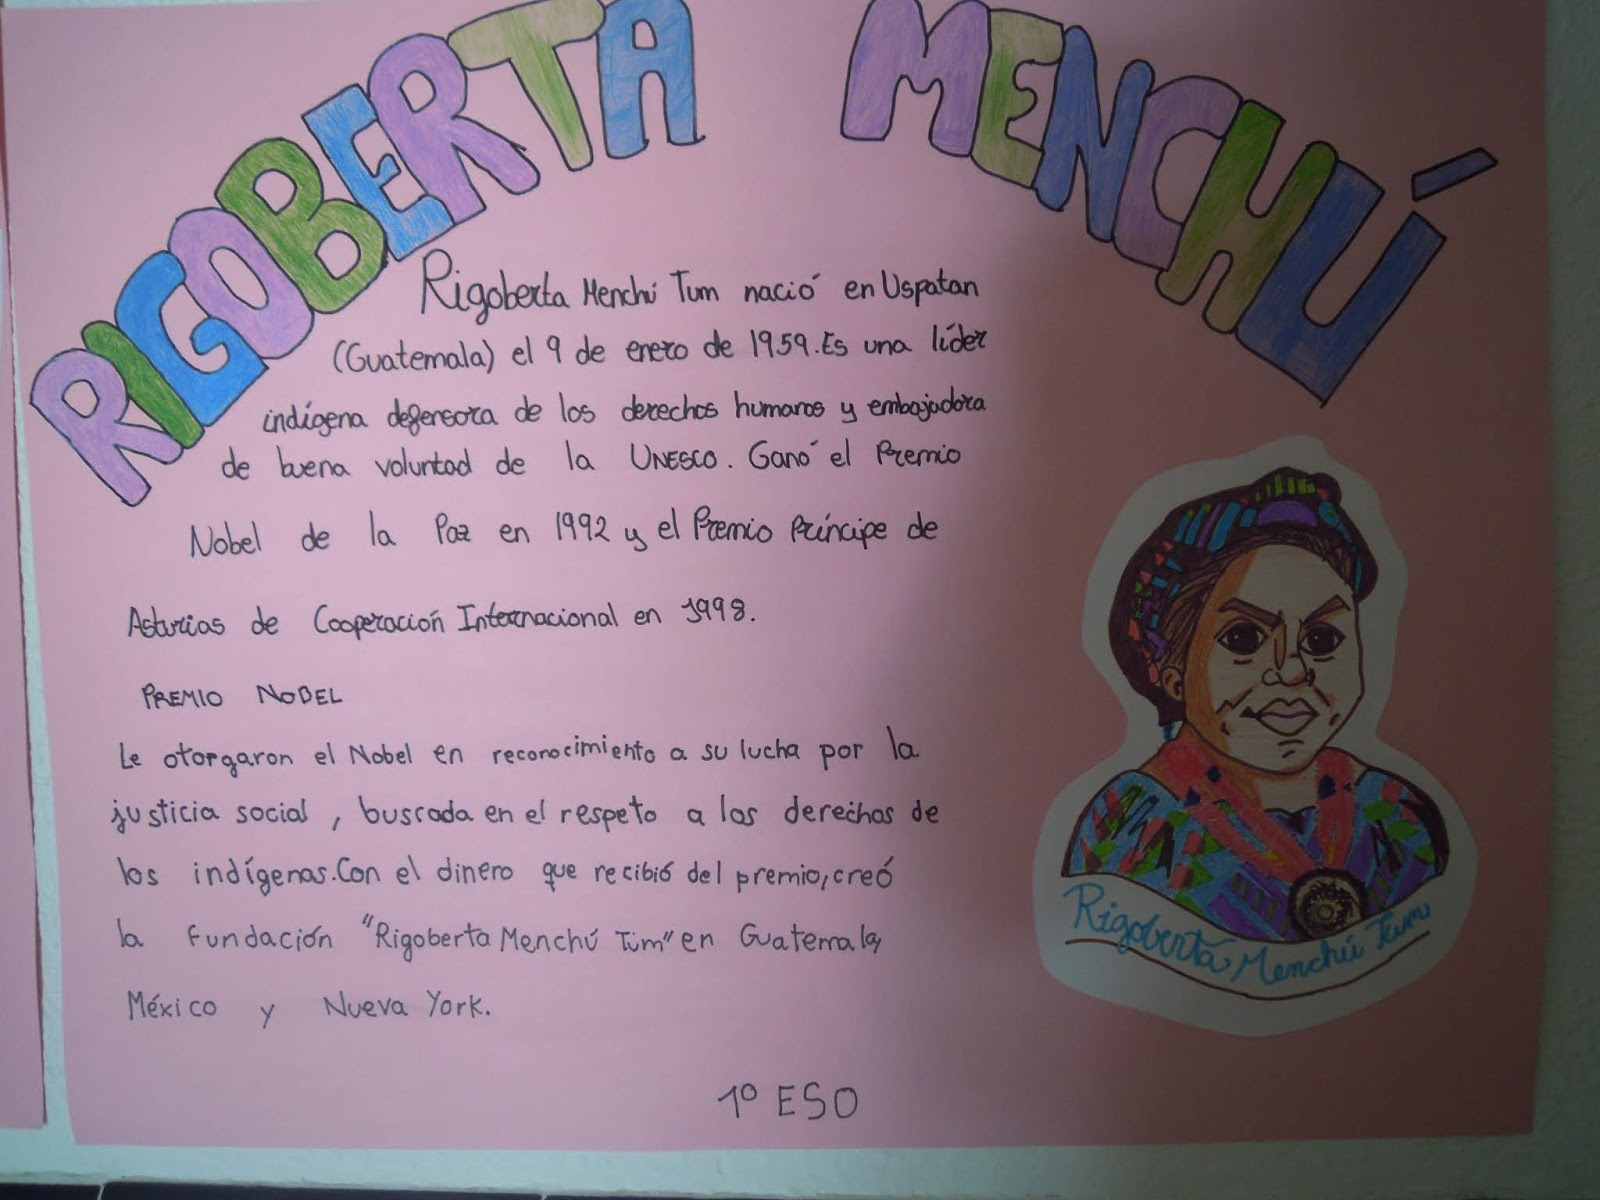 RIGOBERTA MENCHÚ
Rigoberta Menchú Tum nació en Uspatan
(Guatemala) el 9 de enero de 1959. Es una líder
indígena defensora de los derechos humanos y embajadora
de buena voluntad de la UNESCO. Ganó el Premio
Nobel de la Paz en 1992 y el Premio Príncipe de
Asturias de Cooperación Internacional en 1998.
PREMIO NOBEL
Le otorgaron el Nobel en reconocimiento a su lucha por la
justicia social, buscada en el respeto a los derechos de
los indígenas. Con el dinero que recibió del premio, creó
la Fundación "Rigoberta Menchú Tum" en Guatemala,
México y Nueva York.
Rigoberta Menchú Tum
1º ESO